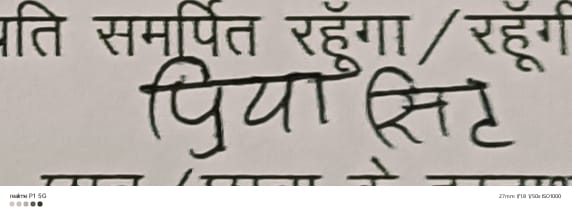 प्रति समर्पित रहूँगा / रहूँगी
प्रिया सिंट
realme P1 5G
27mm f/1.8 1/50s ISO1000